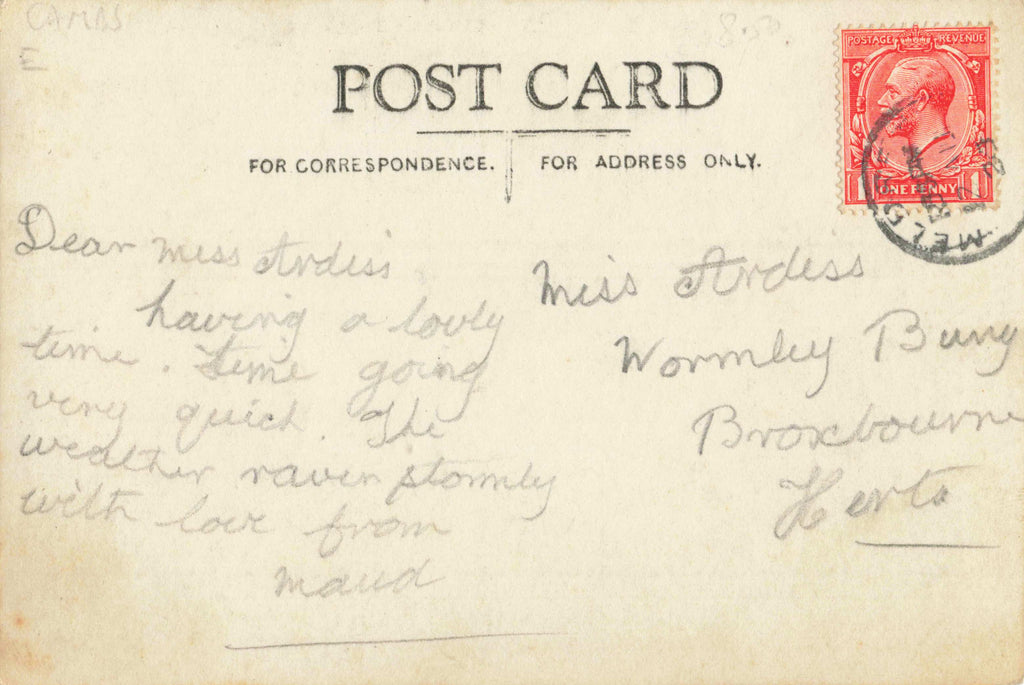 CAMBS
E
8.50.
POST CARD
FOR CORRESPONDENCE.
FOR ADDRESS ONLY.
POSTAGE REVENUE
1 ONE PENNY 1
MELD
23
Dear Miss Ardiss
having a lovly
time. Time going
very quick. The
weather raver stormly
with love from
Maud
Miss Ardiss
Wormley Bung
Broxbourne
Herts